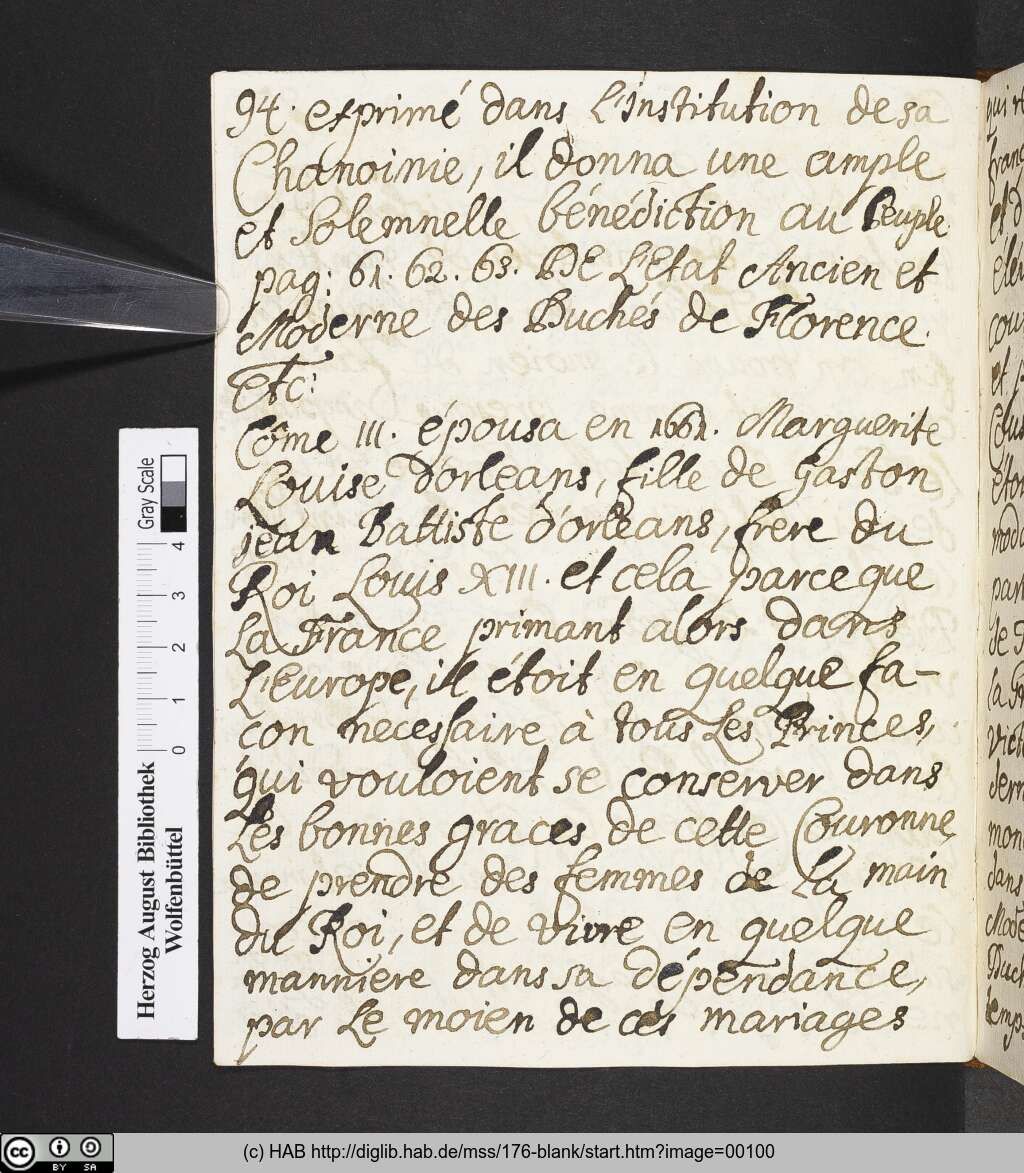 94. exprimé dans L'institution de sa
Chanoinie, il donna une ample
et Solemnelle bénédiction au Peuple.
pag: 61. 62. 63. DE L'Etat Ancien et
Moderne des Duchés de Florence.
etc:
Côme III. épousa en 1661. Marguerite
Louise d'orleans, fille de Gaston
jean Battiste d'orleans, frere du
Roi Louis XIII. et cela parce que
La France primant alors dans
L'Europe, il étoit en quelque fa-
con necessaire à tous Les Princes,
qui vouloient se conserver dans
Les bonnes graces de cette Couronne,
de prendre des femmes de La main
du Roi, et de vivre en quelque
manniere dans sa dépendance,
par Le moien de ces mariages
Gray Scale
0 1 2 3 4
Herzog August Bibliothek
Wolfenbüttel
cc BY SA
(c) HAB http://diglib.hab.de/mss/176-blank/start.htm?image=00100